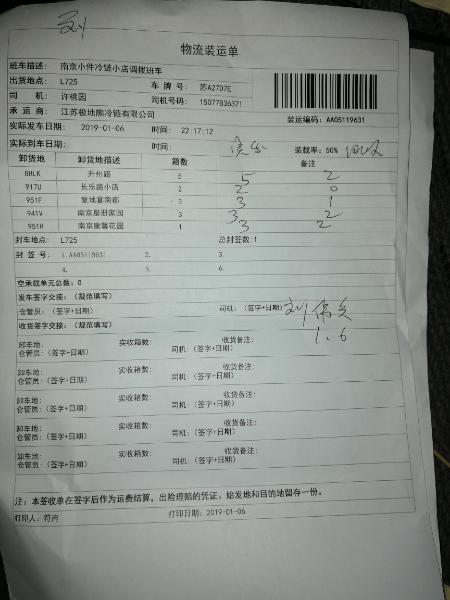 刘
物流装运单
班车描述： 南京小件冷链小店调拨班车
出货地点： L725 车 牌 号： 苏A27D7E
司 机： 许桃园 司机号码： 15077836371
承 运 商： 江苏极地熊冷链有限公司 装运编码：AA05119631
实际发车日期： 2019-01-06 时间： 22:17:12
实际到车日期： 时间： 装载率：50% 回收
卸货地 卸货地描述 箱数 备注
BHLK 升州路 5 5 2
917U 长乐路小店 2 2 0
951F 复地宴南都 3 3 1
941V 南京皇册家园 3 3 2
951H 南京康馨花园 1 3 2
封车地点： L725 总封签数：1
封 签 号： 1.AA05119631 2. 3.
4. 5. 6.
空承载单元总数：0
发车签字交接：（规范填写）
仓管员：（签字+日期） 司机：（签字+日期） 刘伟
收货签字交接：（规范填写） 1.6
卸车地： 实收箱数： 收货备注：
仓管员：（签字+日期） 司机：（签字+日期）
卸车地： 实收箱数： 收货备注：
仓管员：（签字+日期） 司机：（签字+日期）
卸车地： 实收箱数： 收货备注：
仓管员：（签字+日期） 司机：（签字+日期）
卸车地： 实收箱数： 收货备注：
仓管员：（签字+日期） 司机：（签字+日期）
卸车地： 实收箱数： 收货备注：
仓管员：（签字+日期） 司机：（签字+日期）
注：本签收单在签字后作为运费结算。出险理赔的凭证，始发地和目的地留存一份。
打印人：符冉 打印日期：2019-01-06